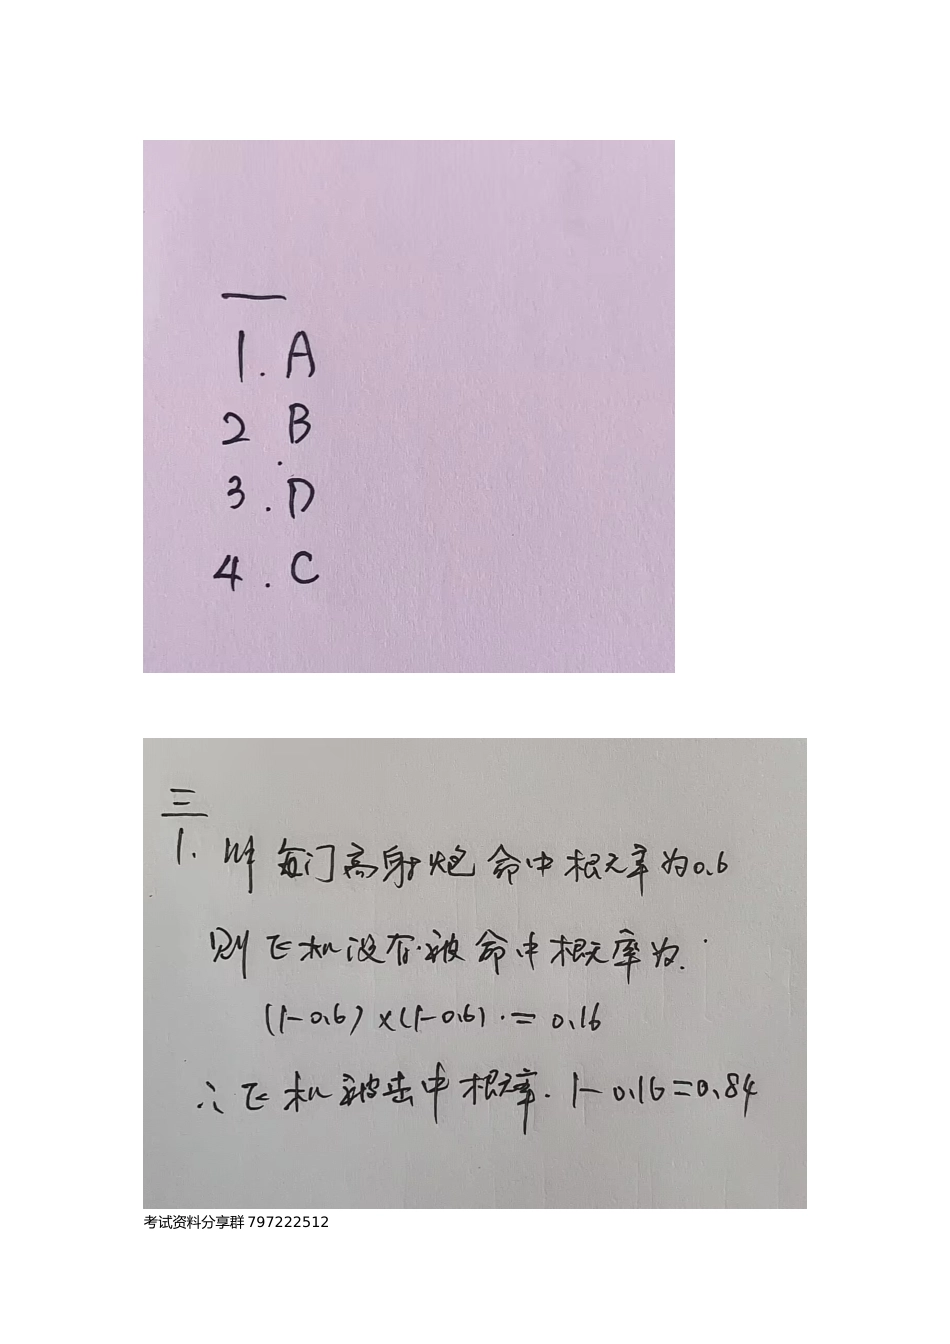 一
1. A
2 B
3. D
4. C
三
1. 解 每门高射炮命中概率为0.6
则飞机没有被命中概率为.
(1-0.6)×(1-0.6)=0.16
∴飞机被击中概率. 1-0.16=0.84
考试资料分享群 797222512